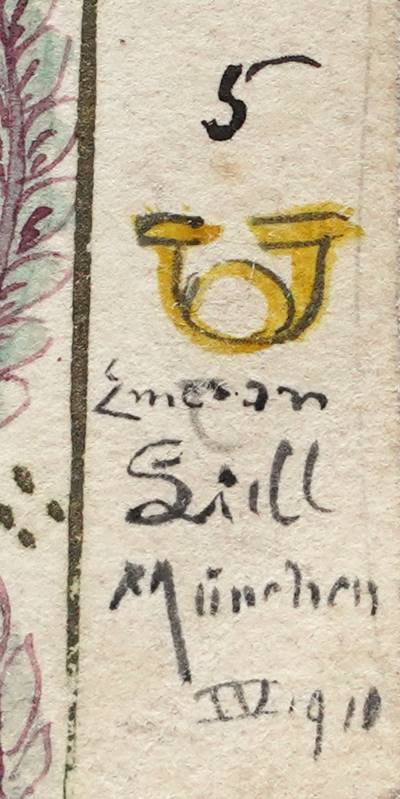 5
Emeran
Sill
München
IV. 910